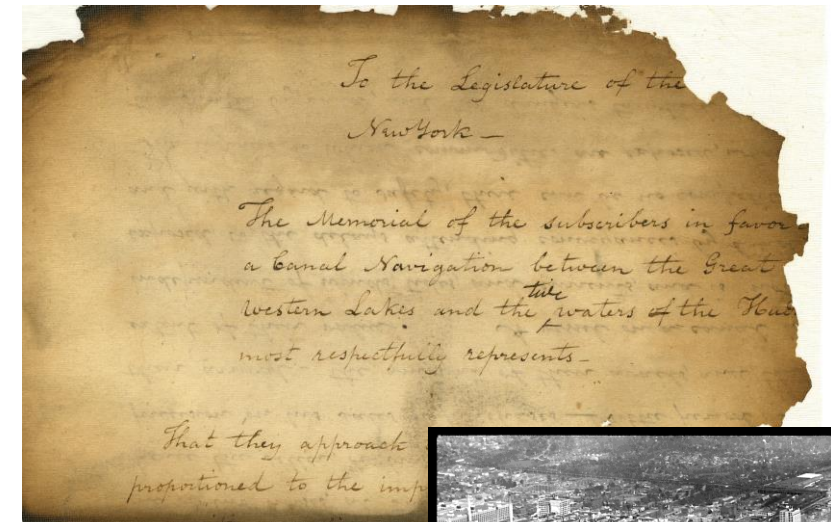 To the Legislature of the
New York —
The Memorial of the subscribers in favor
a Canal Navigation between the Great
tide
western Lakes and the waters of the Hud
most respectfully represents —
That they approach
proportioned to the imp